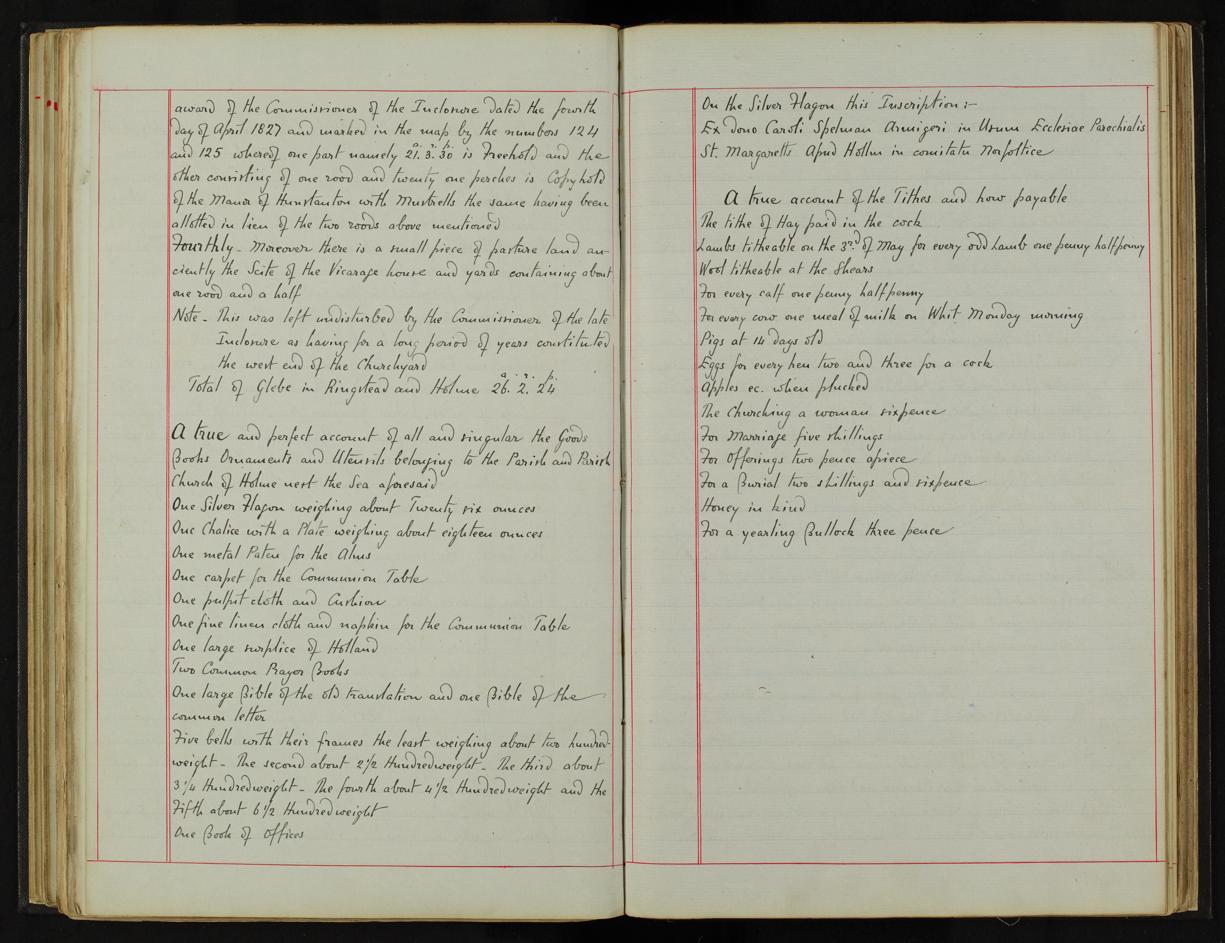 award of the Commissioner of the Inclosure dated the fourth
day of April 1827 and marked in the map by the numbers 124
and 125 whereof one part namely 21. 3. 30 is Freehold and the
other consisting of one rood and twenty one perches is Copyhold
of the Manor of Hunstanton with Mustrells the same having been
allotted in lieu of the two roods above mentioned
Fourthly - Moreover there is a small piece of pasture land an-
ciently the Scite of the Vicarage house and yards containing about
one rood and a half
Note - This was left undisturbed by the Commissioner of the late
Inclosure as having for a long period of years constituted
the west end of the Churchyard
a. r. p.
Total of Glebe in Ringstead and Holme 26. 2. 24
A true and perfect account of all and singular the Goods
Books Ornaments and Utensils belonging to the Parish and Parish
Church of Holme next the Sea aforesaid
One Silver Flagon weighing about Twenty six ounces
One Chalice with a Plate weighing about eighteen ounces
One metal Paten for the Alms
One carpet for the Communion Table
One pulpit cloth and Cushion
One fine linen cloth and napkin for the Communion Table
One large surplice of Holland
Two Common Prayer Books
One large Bible of the old translation and one Bible of the
common letter
Five bells with their frames the least weighing about two hundred-
weight - The second about 2 1/2 Hundredweight - The third about
3 1/4 Hundredweight - The fourth about 4 1/2 Hundredweight and the
Fifth about 6 1/2 Hundredweight
One Book of Offices
On the Silver Flagon this Inscription :-
Ex dono Caroli Spelman Armigeri in Usum Ecclesiae Parochialis
St. Margaretts Apud Hollm in comitatu Norfoltice
A true account of the Tithes and how payable
The tithe of Hay paid in the cock
Lambs titheable on the 3rd of May for every odd Lamb one penny halfpenny
Wool titheable at the Shears
For every calf one penny halfpenny
For every cow one meal of milk on Whit Monday morning
Pigs at 14 days old
Eggs for every hen two and three for a cock
Apples ec. when plucked
The Churching a woman sixpence
For Marriage five shillings
For Offerings two pence apiece
For a Burial two shillings and sixpence
Honey in kind
For a yearling Bullock three pence